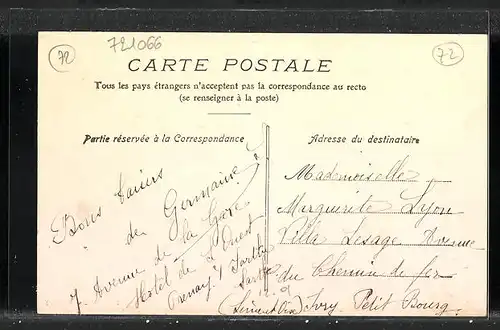 721066
72
72
CARTE POSTALE
Tous les pays étrangers n'acceptent pas la correspondance au recto
(se renseigner à la poste)
Partie réservée à la Correspondance
Adresse du destinataire
Bons baisers
de Germaine
7 Avenue de la Gare
Hotel de l'Ouest
Sarthe
Mademoiselle
Marguerite Lyon
Villa Lesage Avenue
du Chemin de fer
Petit Bourg